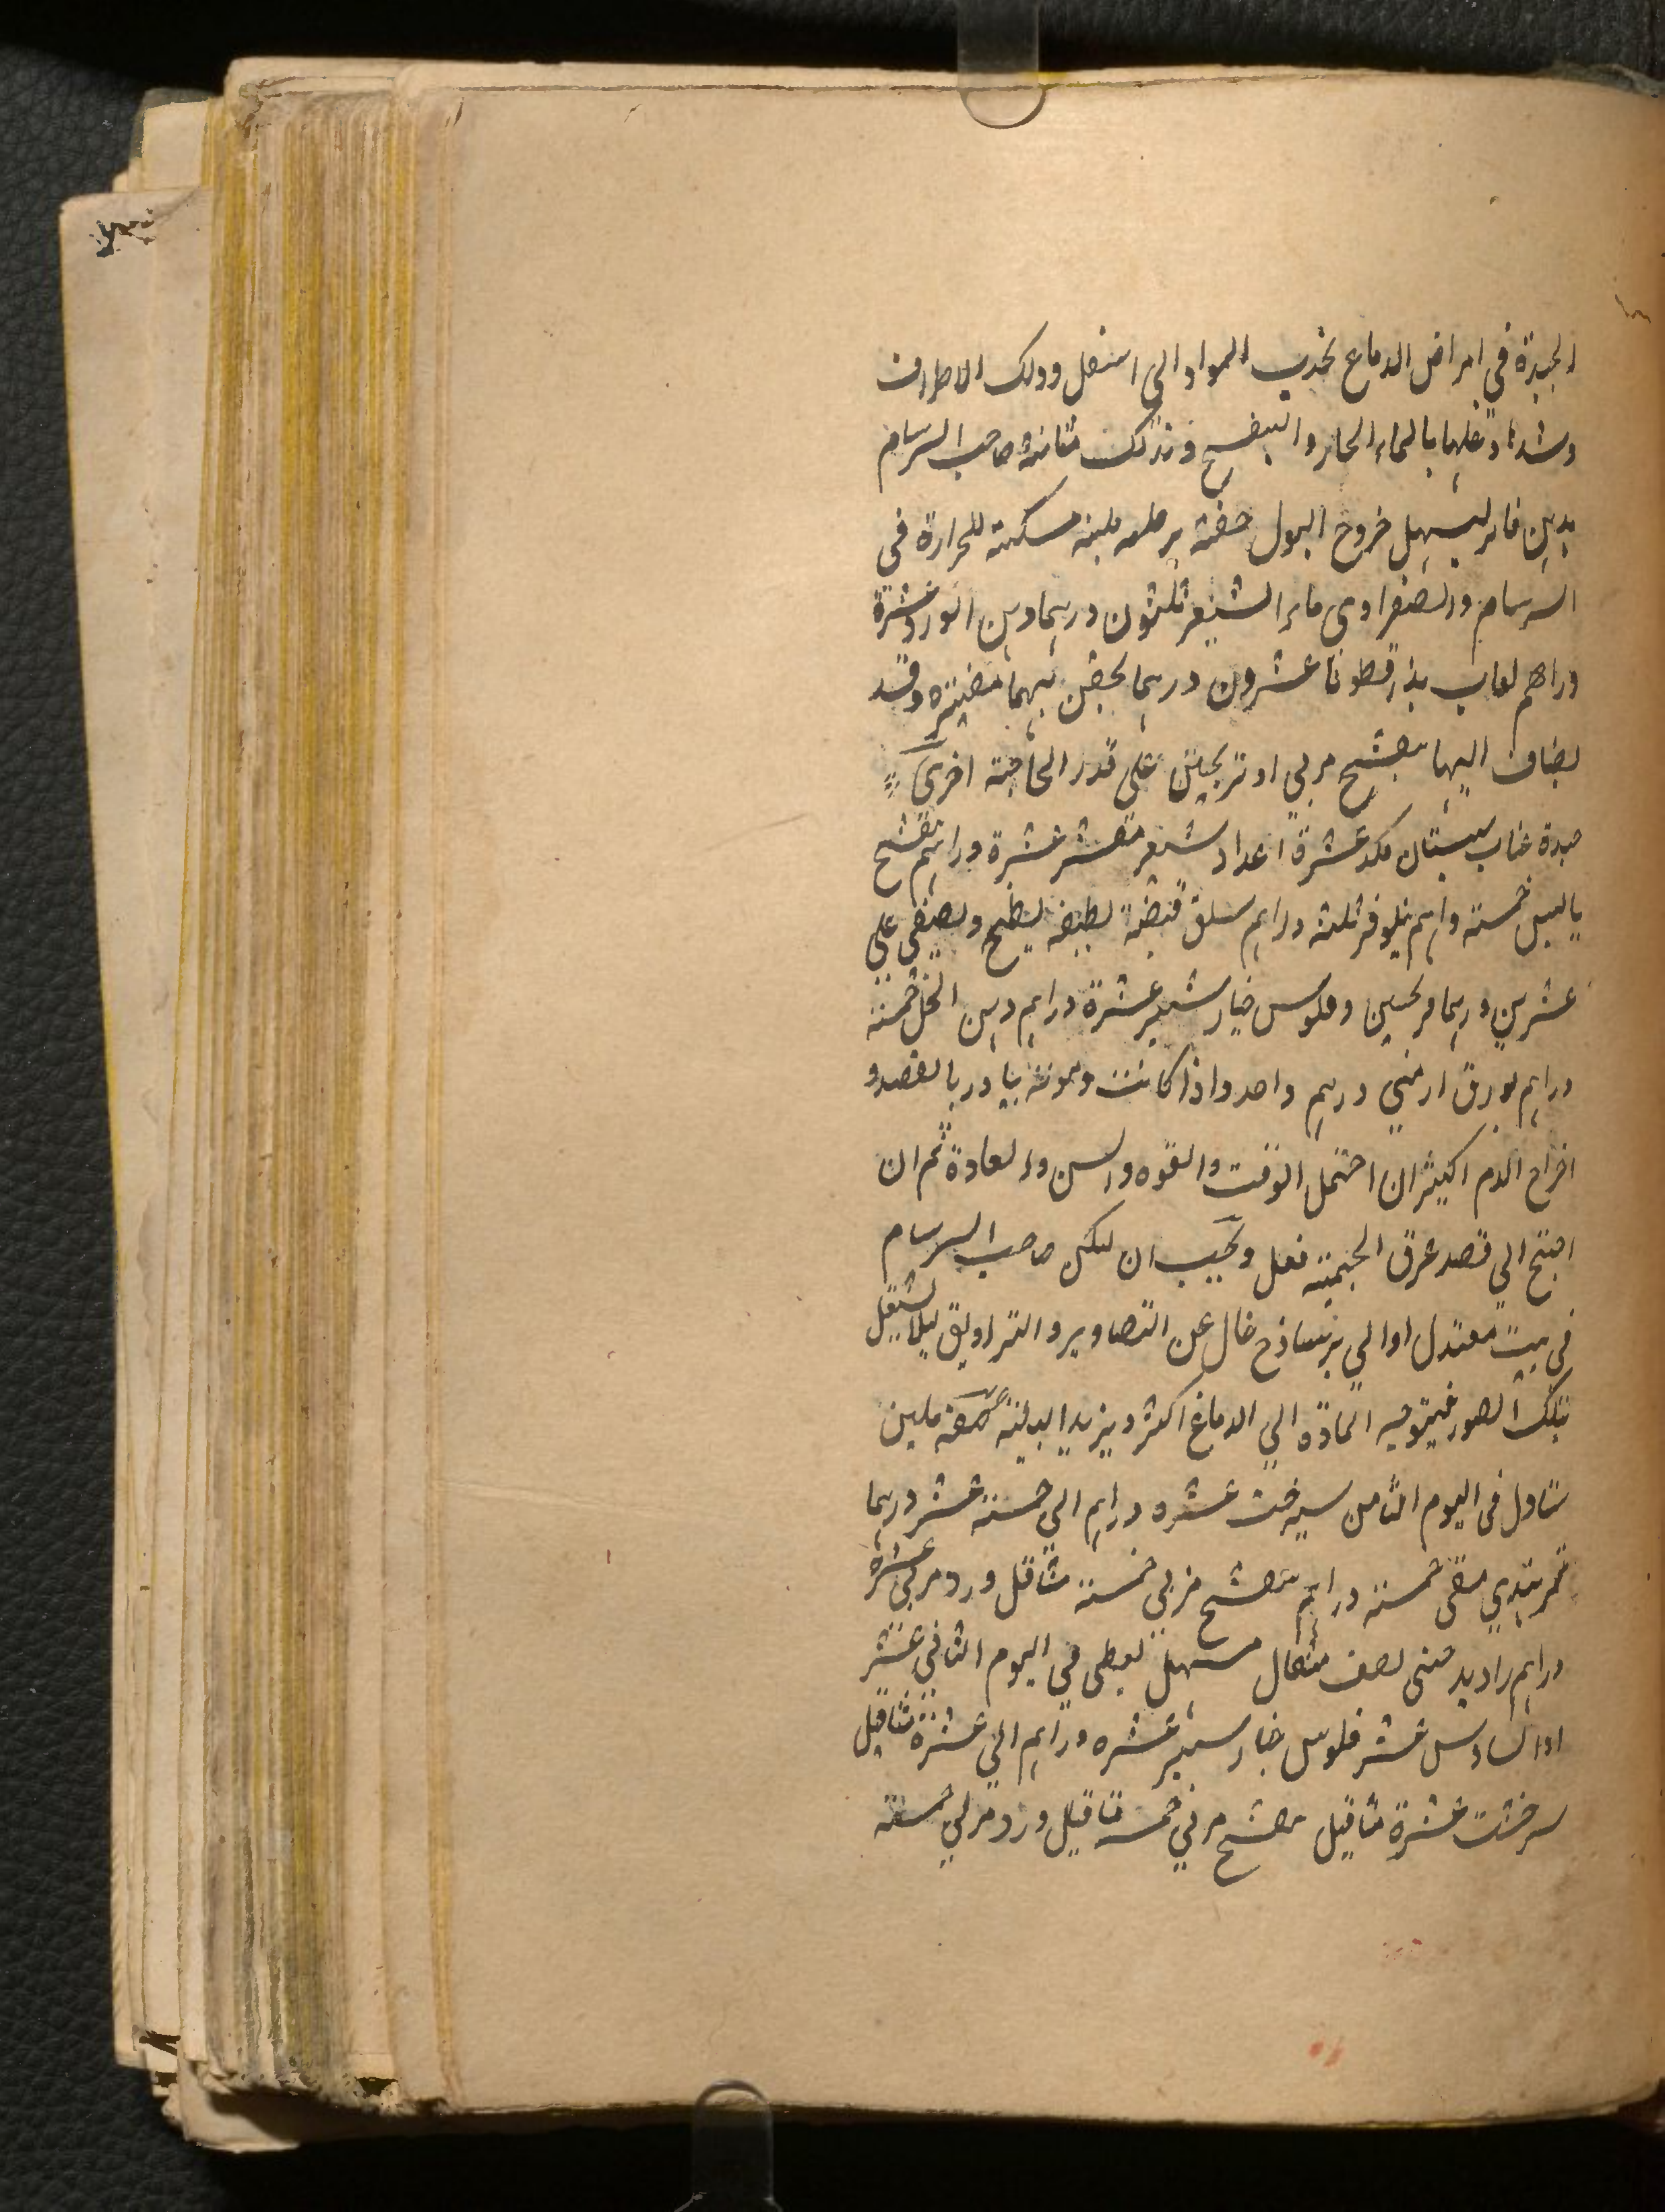 الجيدة في امراض الدماغ بجذب المواد الى اسفل ودلك الاطراف
وشدها وغسلها بالماء الحار والبنفسج وتدلك مثانة صاحب السرسام
بدهن فاتر ليسهل خروج البول حقنة مرطبه ملينه مسكنة للحرارة في
السرسام والصفراوى ماء الشعير ثلثون درهما دهن الورد عشرة
دراهم لعاب بذرقطونا عشرون درهما يحقن بهما مفتره وقد
يضاف اليها بنفشج مربي او ترنجبين على قدر الحاجة اخرى
جيدة عناب سبستان مكد عشرة اعداد شعير مقشر عشرة دراهم بنفشج
يابس خمسة دراهم نيلوفر ثلثة دراهم سلق قبضة لطيفة يطبخ ويصفى على
عشرين درهما ترنجبين وفلوس خيار شنبر عشرة دراهم دهن الخل خمسة
دراهم بورق ارمني درهم واحد واذا كانت دمويته يبادر بالفصد و
اخراج الدم اكثيران احتمل الوقت والقوه والسن والعادة ثم ان
احتج الى فصد عرق الجبهة فعل ويجب ان يسكن صاحب السرسام
في بيت معتدل او الى برد ساذج خال عن التصاوير والتزاويق ليلا يشتغل
بتلك الصور فيتوجه المادة الي الدماغ اكثر ويزيد البلية صفة ملين
يتناول في اليوم الثامن سيرخشت عشره دراهم الي خمسة عشر درهما
تمر هندي منقى خمسة دراهم بنفشج مربي خمسة مثاقل ورد مربى عشرة
دراهم راوند صينى نصف مثقال مسهل يعطى في اليوم الثاني عشر
او السادس عشر فلوس خيار شنبر عشره دراهم الى عشرة مثاقيل
سيرخشت عشرة مثاقيل بنفشج مربي خمسة مثاقيل ورد مربي خمسة